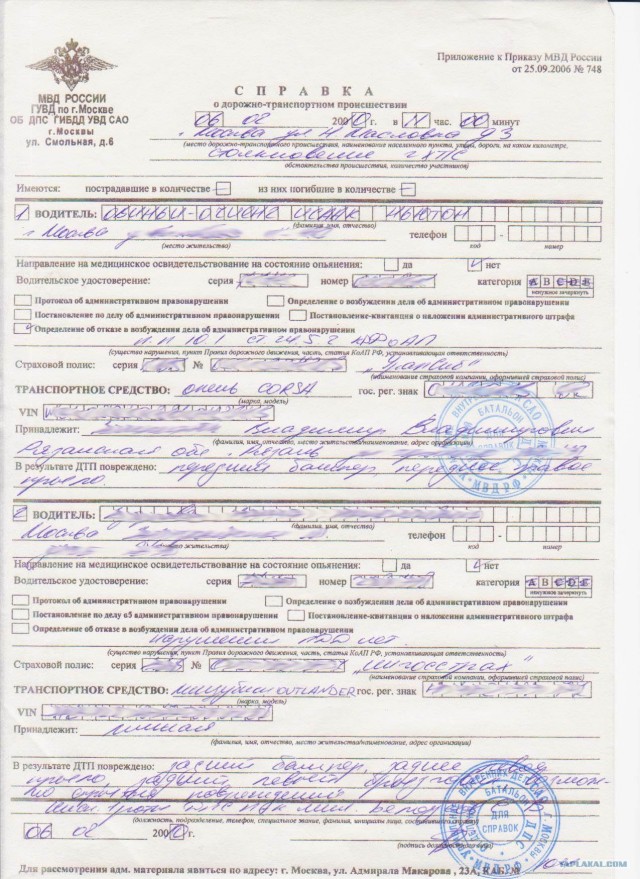 Приложение к Приказу МВД России
от 25.09.2006 № 748
МВД РОССИИ
ГУВД по г.Москве
ОБ ДПС ГИБДД УВД САО
г.Москвы
ул. Смольная, д.6
СПРАВКА
о дорожно-транспортном происшествии
06 02 2010 г. в 11 час. 00 минут
г. Москва ул Н Масловка д 3
(место дорожно-транспортного происшествия, наименование населенного пункта, улицы, дороги, на каком километре,
столкновение 2х ТС
обстоятельства происшествия, количество участников)
Имеются: пострадавшие в количестве – из них погибшие в количестве –
1 ВОДИТЕЛЬ: ИСААК НЬЮТОН
(фамилия, имя, отчество)
г Москва телефон
(место жительства) код номер
Направление на медицинское освидетельствование на состояние опьянения: да нет
Водительское удостоверение: серия номер категория A B C D E
ненужное зачеркнуть
Протокол об административном правонарушении Определение о возбуждении дела об административном правонарушении
Постановление по делу об административном правонарушении Постановление-квитанция о наложении административного штрафа
Определение об отказе в возбуждении дела об административном правонарушении
п.п 10.1 ст 24.5 КРФоАП
(существо нарушения, пункт Правил дорожного движения, часть, статья КоАП РФ, устанавливающая ответственность)
Страховой полис: серия № "УралСиб"
(наименование страховой компании, оформившей страховой полис)
ТРАНСПОРТНОЕ СРЕДСТВО: опель CORSA гос. рег. знак
(марка, модель)
VIN
Принадлежит: Владимир Владимирович
(фамилия, имя, отчество, место жительства/наименование, адрес организации)
Рязанская обл. г. Рязань
В результате ДТП повреждено: передний бампер, переднее правое
крыло.
2 ВОДИТЕЛЬ:
(фамилия, имя, отчество)
Москва телефон
(место жительства) код номер
Направление на медицинское освидетельствование на состояние опьянения: да нет
Водительское удостоверение: серия номер категория A B C D E
ненужное зачеркнуть
Протокол об административном правонарушении Определение о возбуждении дела об административном правонарушении
Постановление по делу об административном правонарушении Постановление-квитанция о наложении административного штрафа
Определение об отказе в возбуждении дела об административном правонарушении
нарушений ПДД нет.
(существо нарушения, пункт Правил дорожного движения, часть, статья КоАП РФ, устанавливающая ответственность)
Страховой полис: серия № "Ингосстрах"
(наименование страховой компании, оформившей страховой полис)
ТРАНСПОРТНОЕ СРЕДСТВО: мицубиси OUTLANDER гос. рег. знак
(марка, модель)
VIN
Принадлежит: личная
(фамилия, имя, отчество, место жительства/наименование, адрес организации)
В результате ДТП повреждено: задний бампер, заднее левое
крыло, задний левый брызговик, возмож-
но скрытые повреждения
(должность, подразделение, телефон, специальное звание, фамилия, инициалы лица, составившего справку)
06 02 2010 г.
(подпись должностного лица)
ДЛЯ СПРАВОК
Для рассмотрения адм. материала явиться по адресу: г. Москва, ул. Адмирала Макарова, 23А, КАБ. №
YAPLAKAL.COM